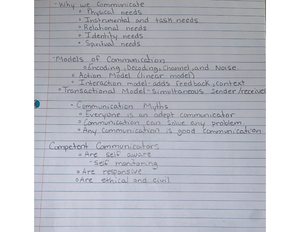 Why we communicate
Physical needs
Instrumental and task needs
Relational needs
Identity needs
Spiritual needs
Models of Communication
Encoding, Decoding, Channel, and Noise
Action Model (linear model)
Interaction model-adds feedback, context
Transactional Model-Simultaneous Sender/receiver
Communication Myths
Everyone is an adept communicator
Communication can solve any problem
Any communication is good communication
Competent Communicators
Are self aware
-Self monitoring
Are responsive
Are ethical and civil